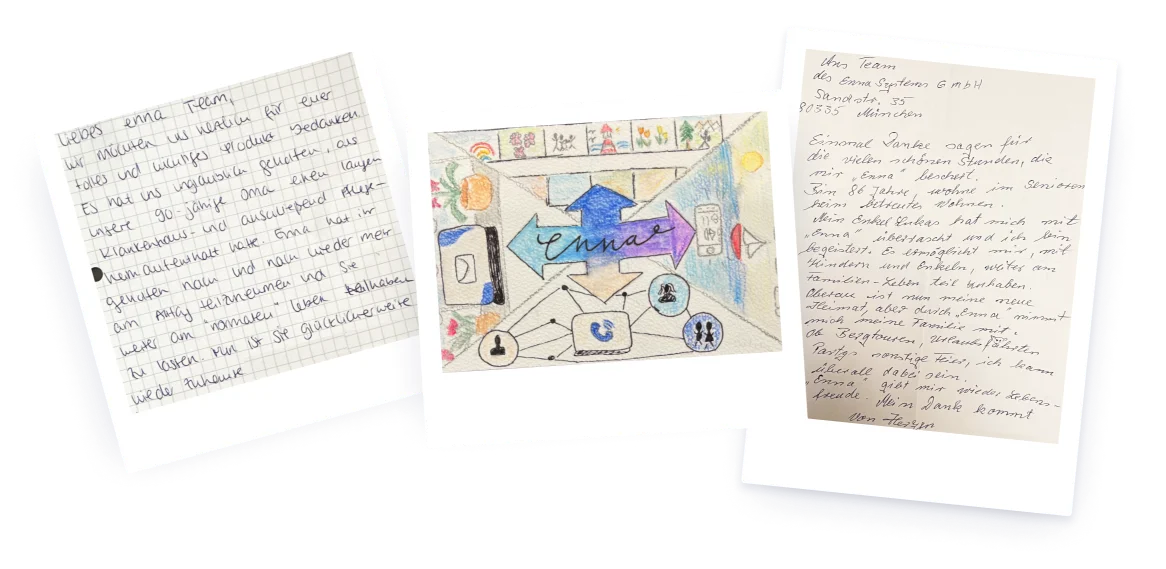 Liebes enna Team,
wir möchten uns herzlich für euer
tolles und wichtiges Produkt bedanken.
Es hat uns unglaublich geholfen, als
unsere 90-jährige Oma einen langen
Krankenhaus- und anschließend Pflege-
heimaufenthalt hatte. Enna hat ihr
geholfen nach und nach wieder mehr
am Alltag teilzunehmen und sie
weiter am "normalen" leben teilhaben
zu lassen. Nun ist sie glücklicherweise
wieder zuhause
enna
Ans Team
des Enna Systems GmbH
Sandstr. 35
80335 München
Einmal Danke sagen für
die vielen schönen Stunden, die
mir „Enna" beschert.
Bin 86 Jahre, wohne im Senioren
heim betreutes Wohnen.
Mein Enkel Lukas hat mich mit
„Enna" überrascht und ich bin
begeistert. Es ermöglicht mir, mit
Kindern und Enkeln, weiter am
Familien-Leben teil zu haben.
Oberau ist nun meine neue
Heimat, aber durch „Enna" nimmt
mich meine Familie mit.
Ob Bergtouren, Urlaubsfahrten
Partys sonstige Feier, ich kann
überall dabei sein.
„Enna" gibt mir wieder Lebens-
freude. Mein Dank kommt
von Herzen